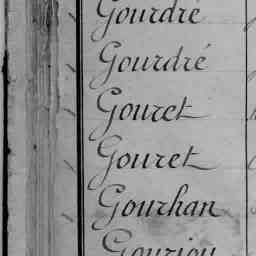 Gourdré
Gourdré
Gouret
Gouret
Gourhan
Gouriou